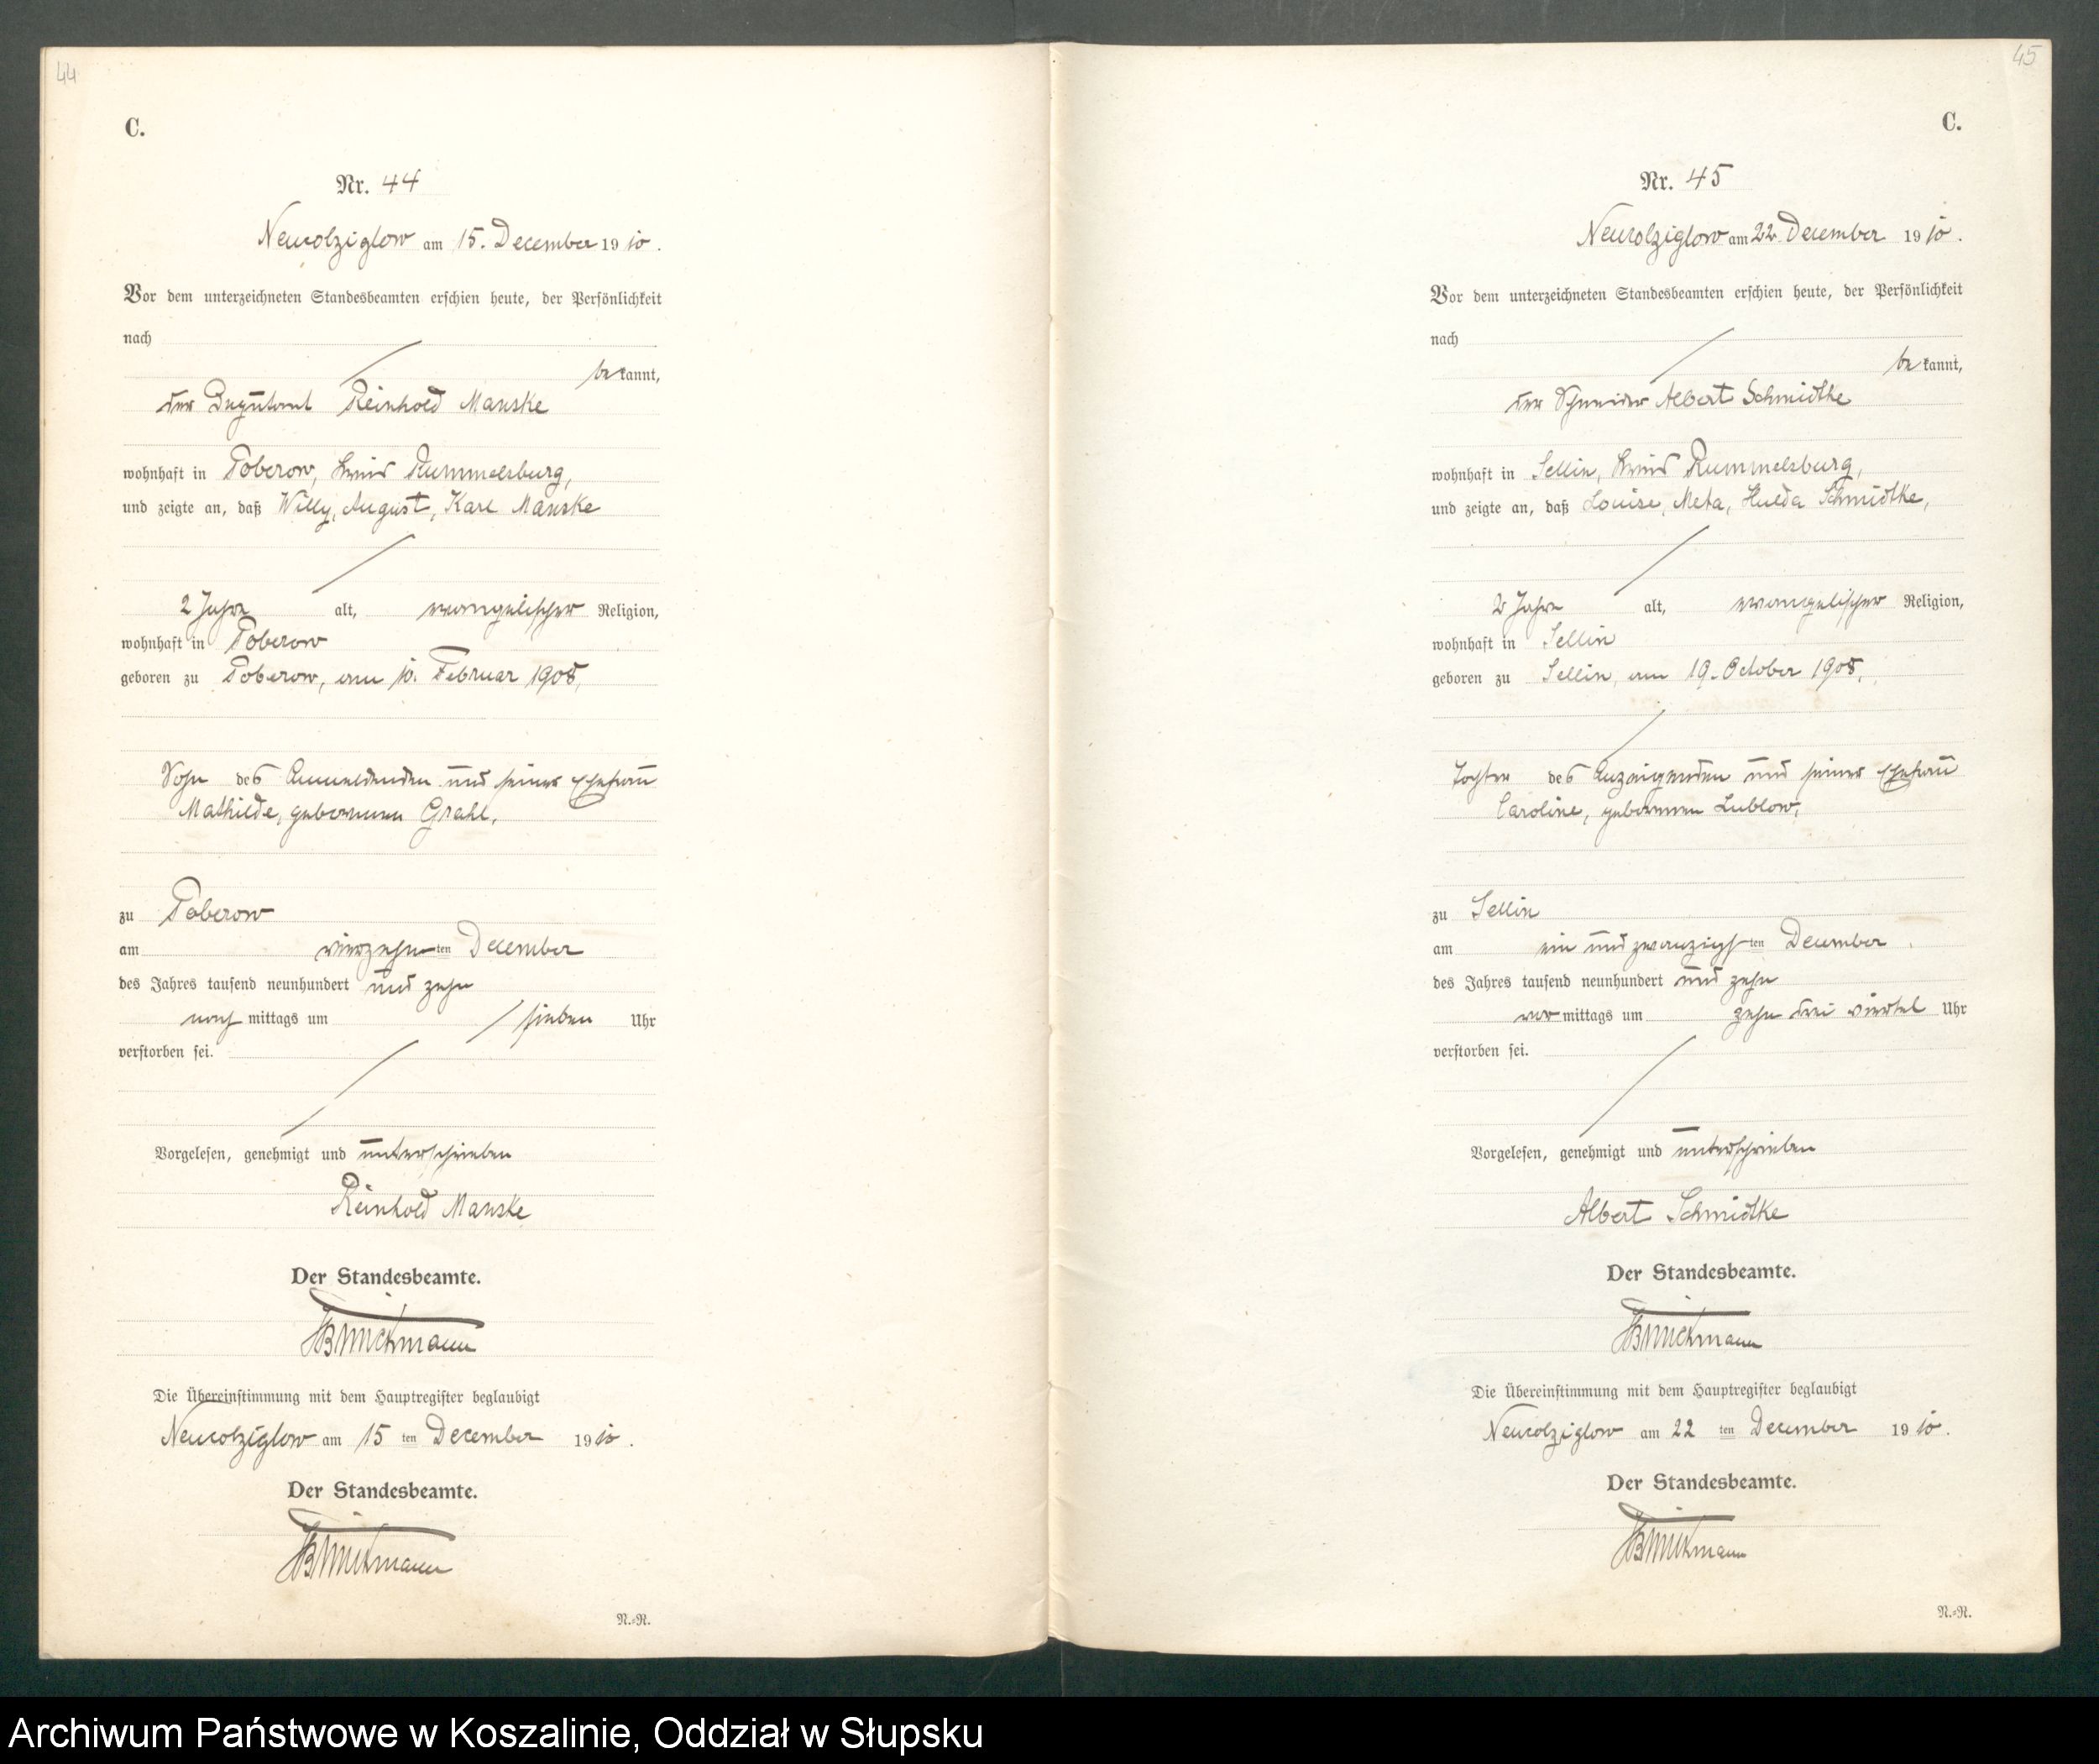 44
C.
Nr. 44
Neukolziglow am 15. December 19 10.
Vor dem unterzeichneten Standesbeamten erschien heute, der Persönlichkeit
nach
be kannt,
der Reinhold Manske
wohnhaft in Poberow, Kreis Rummelsburg,
und zeigte an, daß Willy, August, Karl Manske
2 Jahre alt, evangelischer Religion,
wohnhaft in Poberow
geboren zu Poberow, am 10. Februar 1908,
Sohn des Anmeldenden und seiner Ehefrau
Mathilde, geborenen Grahl,
zu Poberow
am vierzehn ten December
des Jahres tausend neunhundert und zehn
nach mittags um sieben Uhr
verstorben sei.
Vorgelesen, genehmigt und unterschrieben
Reinhold Manske
Der Standesbeamte.
Die Übereinstimmung mit dem Hauptregister beglaubigt
Neukolziglow am 15 ten December 19 10.
Der Standesbeamte.
N.=R.
45
C.
Nr. 45
Neukolziglow am 22. December 19 10.
Vor dem unterzeichneten Standesbeamten erschien heute, der Persönlichkeit
nach
be kannt,
der Schneider Albert Schmidtke
wohnhaft in Sellin, Kreis Rummelsburg,
und zeigte an, daß Louise, Meta, Hulda Schmidtke,
2 Jahre alt, evangelischer Religion,
wohnhaft in Sellin
geboren zu Sellin, am 19. October 1908,
Tochter des Anzeigenden und seiner Ehefrau
Caroline, geborenen Lublow,
zu Sellin
am ein und zwanzigs ten December
des Jahres tausend neunhundert und zehn
vor mittags um zehn drei viertel Uhr
verstorben sei.
Vorgelesen, genehmigt und unterschrieben
Albert Schmidtke
Der Standesbeamte.
Die Übereinstimmung mit dem Hauptregister beglaubigt
Neukolziglow am 22 ten December 19 10.
Der Standesbeamte.
N.=R.
Archiwum Państwowe w Koszalinie, Oddział w Słupsku